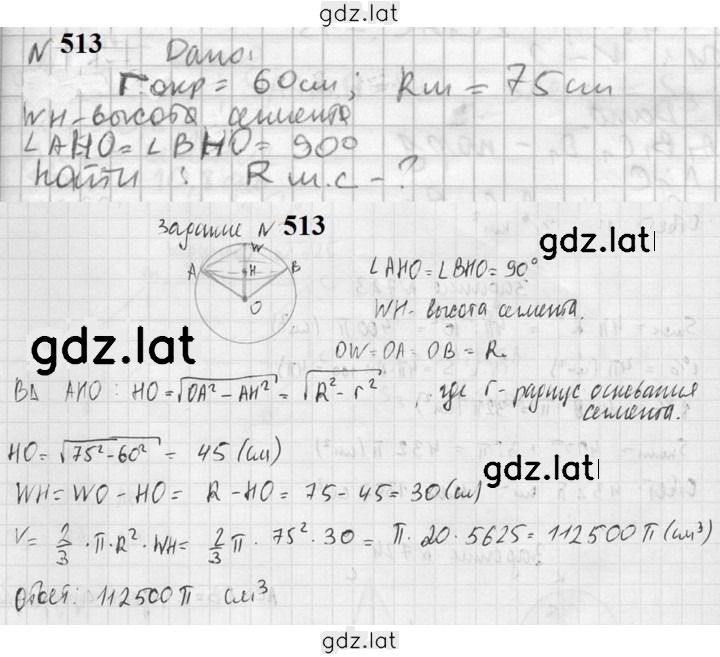 gdz.lat
N 513 Дано:
r окр = 60 см; Rш = 75 см
WH - высота сегмента
∠AHO = ∠BHO = 90°
Найти: R ш.с - ?
Задание N 513
gdz.lat
W
A H B
O
∠AHO = ∠BHO = 90°
WH - высота сегмента.
gdz.lat
OW = OA = OB = R.
В Δ AHO: HO = √(OA² - AH²) = √(R² - r²), где r - радиус основания
сегмента.
HO = √(75² - 60²) = 45 (см)
gdz.lat
WH = WO - HO = R - HO = 75 - 45 = 30 (см)
V = 2/3 · π · R² · WH = 2/3 π · 75² · 30 = π · 20 · 5625 = 112500 π (см³)
Ответ: 112500 π см³
gdz.lat